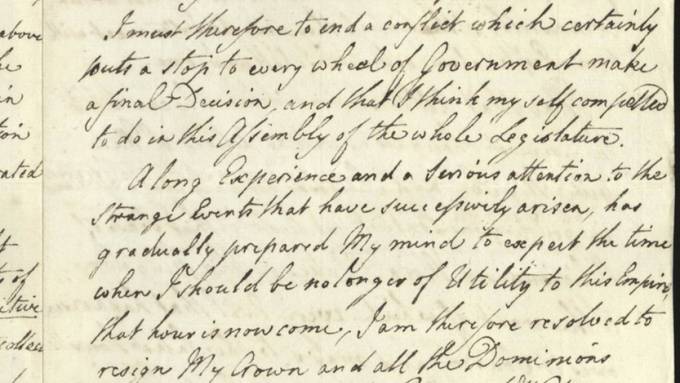 above
I must therefore to end a conflict which certainly
puts a stop to every wheel of Government make
a final Decision, and that I think myself compelled
to do in this Assembly of the whole Legislature.
A long Experience and a serious attention to the
Strange Events that have successively arisen, has
gradually prepared My mind to expect the time
when I should be no longer of Utility to this Empire,
that hour is now come, I am therefore resolved to
resign My Crown and all the Dominions